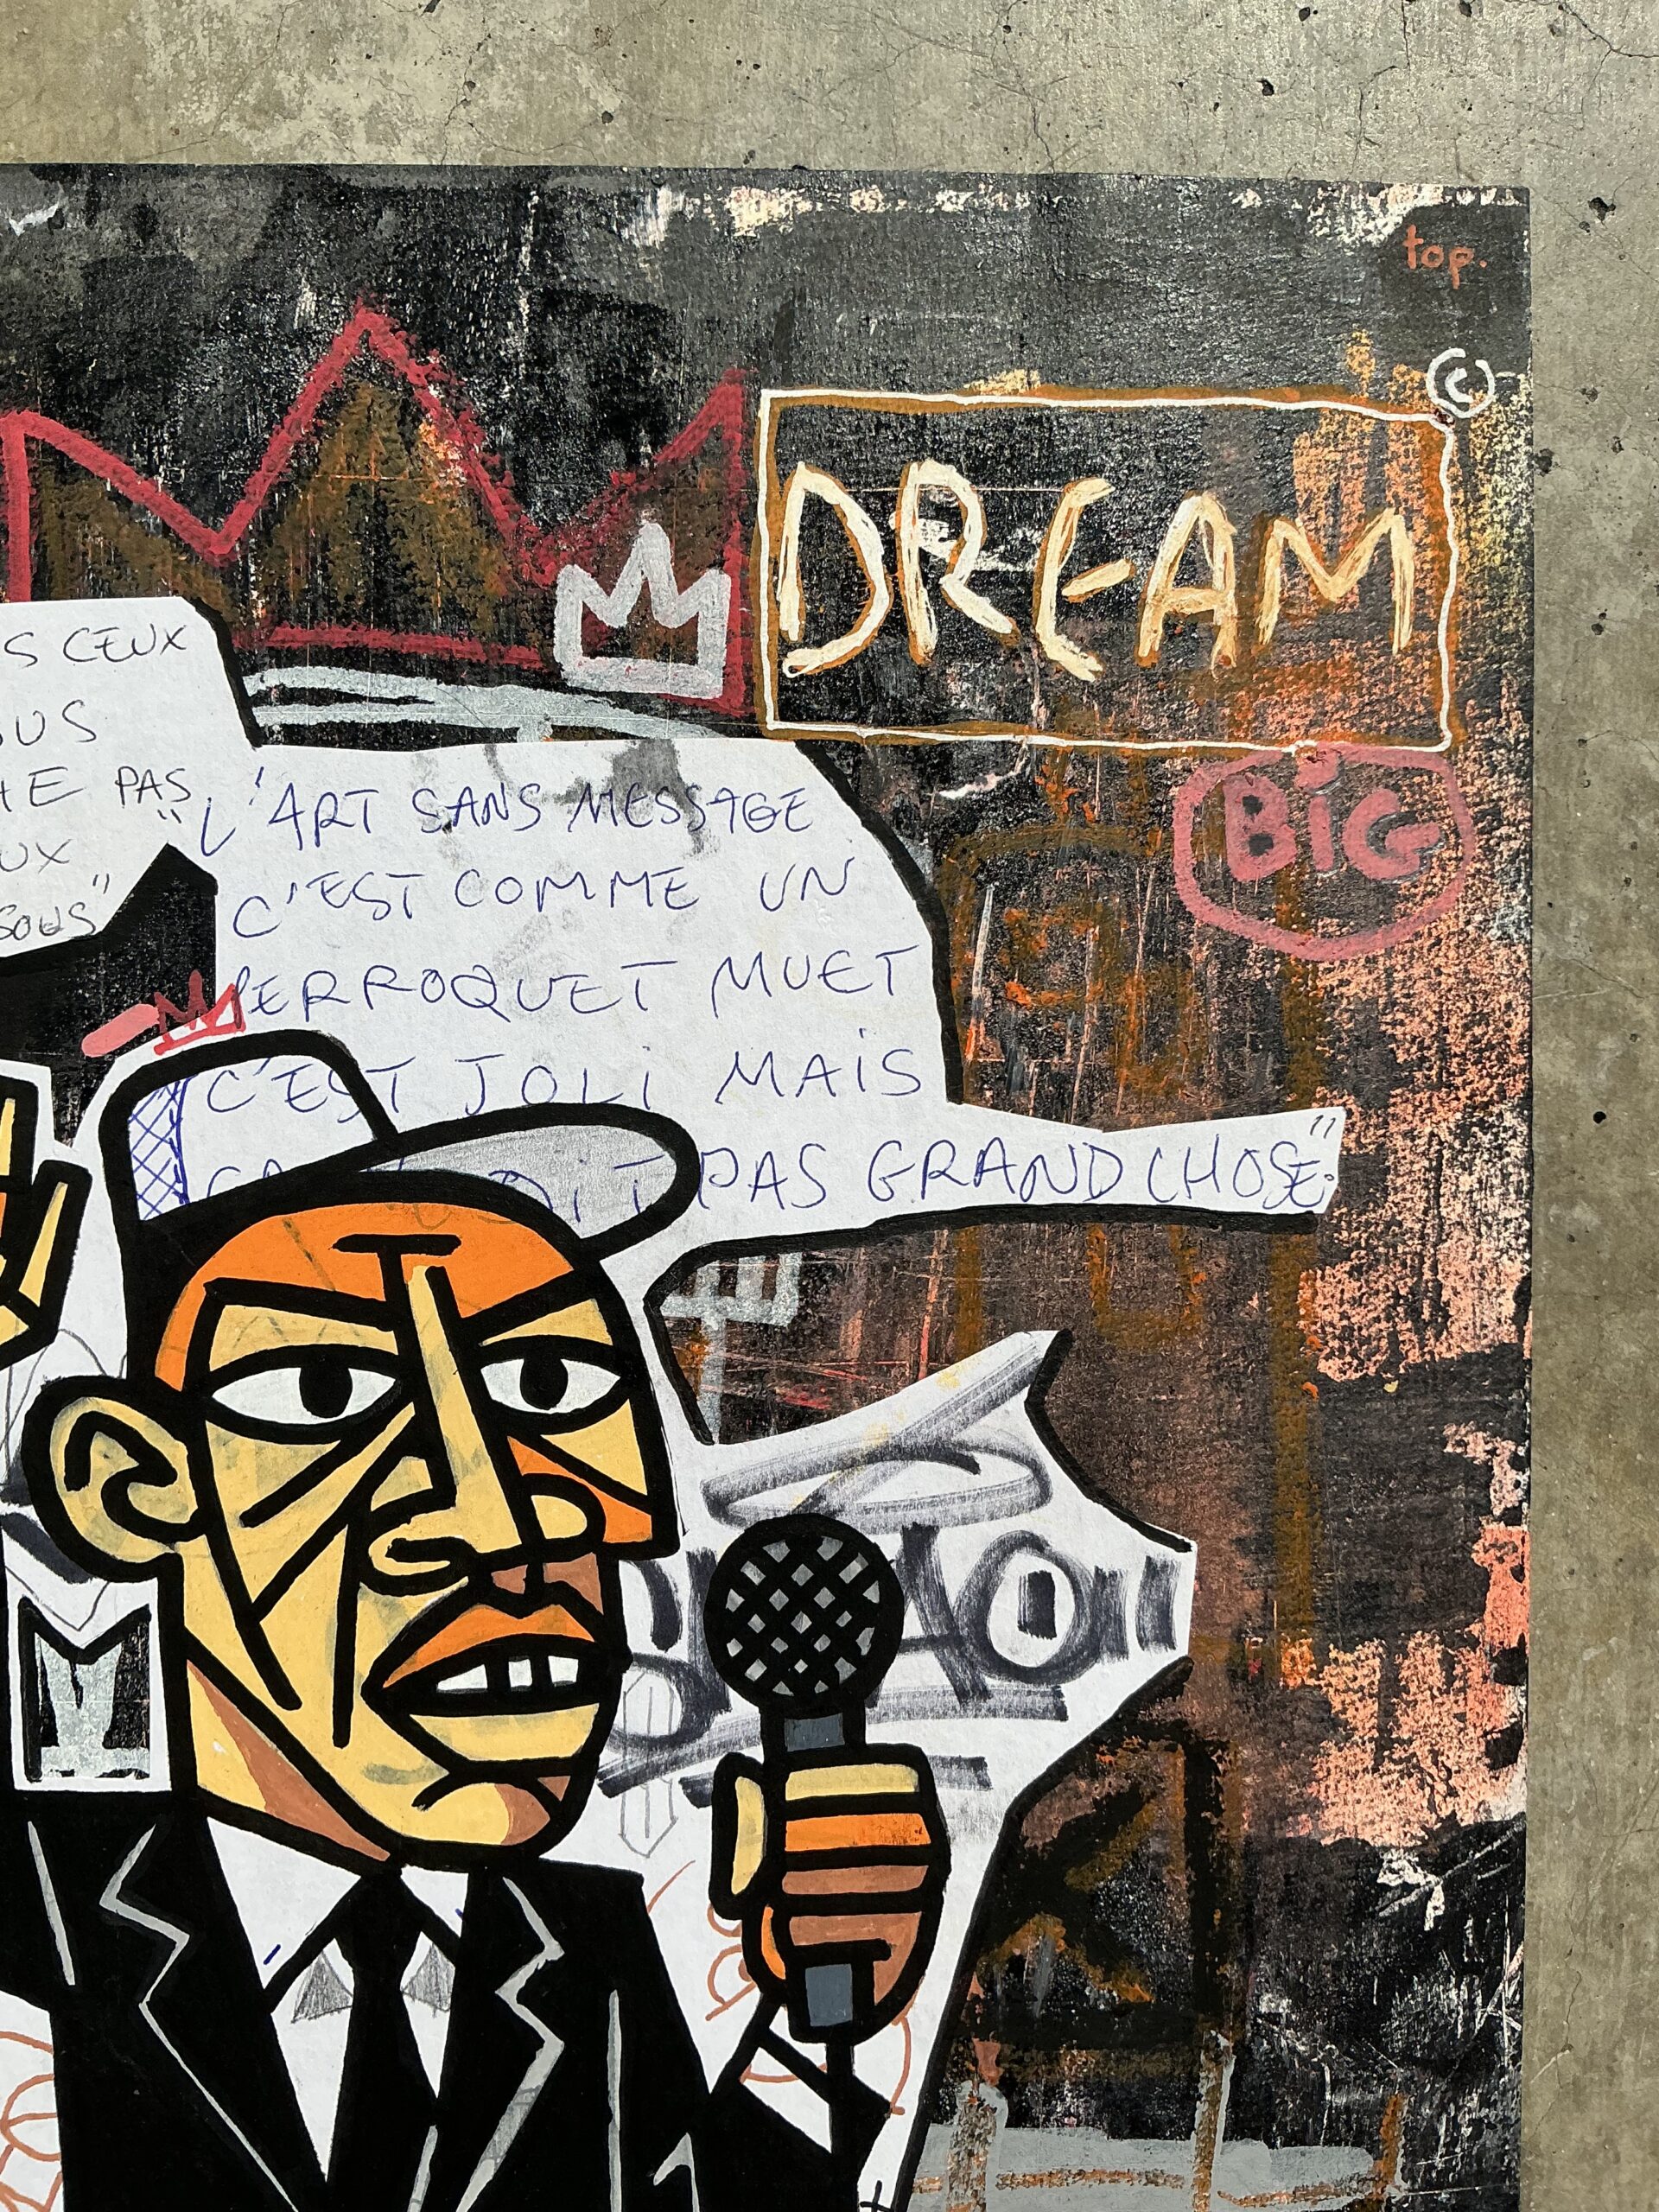 top.
©
DREAM
BiG
S CEUX
OUS
HE PAS
UX
SOUS"
"L'ART SANS MESSAGE
C'EST COMME UN
PERROQUET MUET
C'EST JOLi MAiS
PAS GRAND CHOSE."